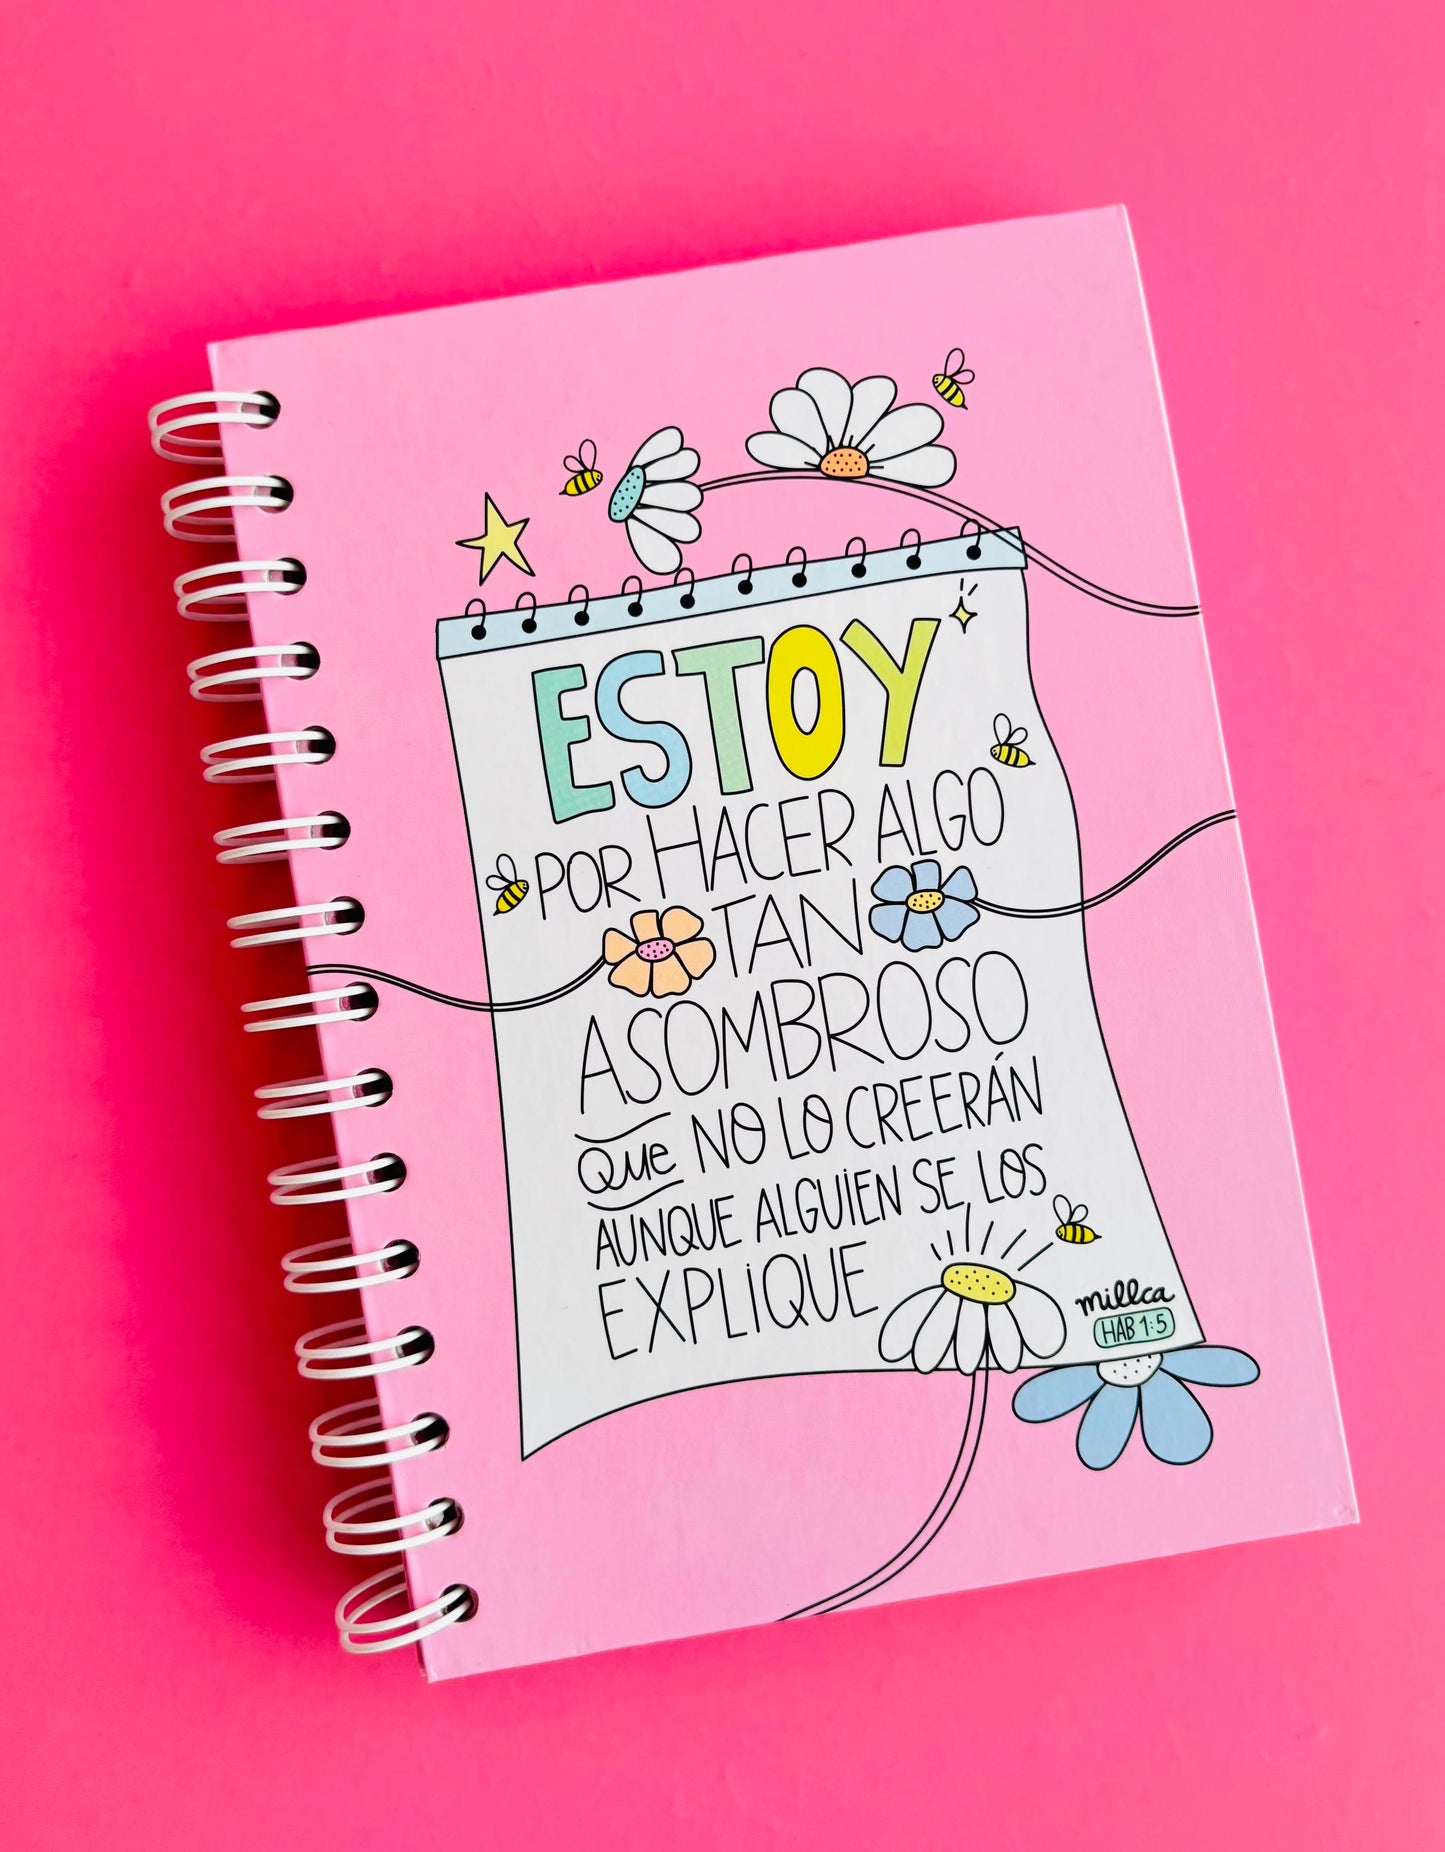 ESTOY
POR HACER ALGO
TAN
ASOMBROSO
que NO LO CREERÁN
AUNQUE ALGUIEN SE LOS
EXPLIQUE
millca
HAB 1:5